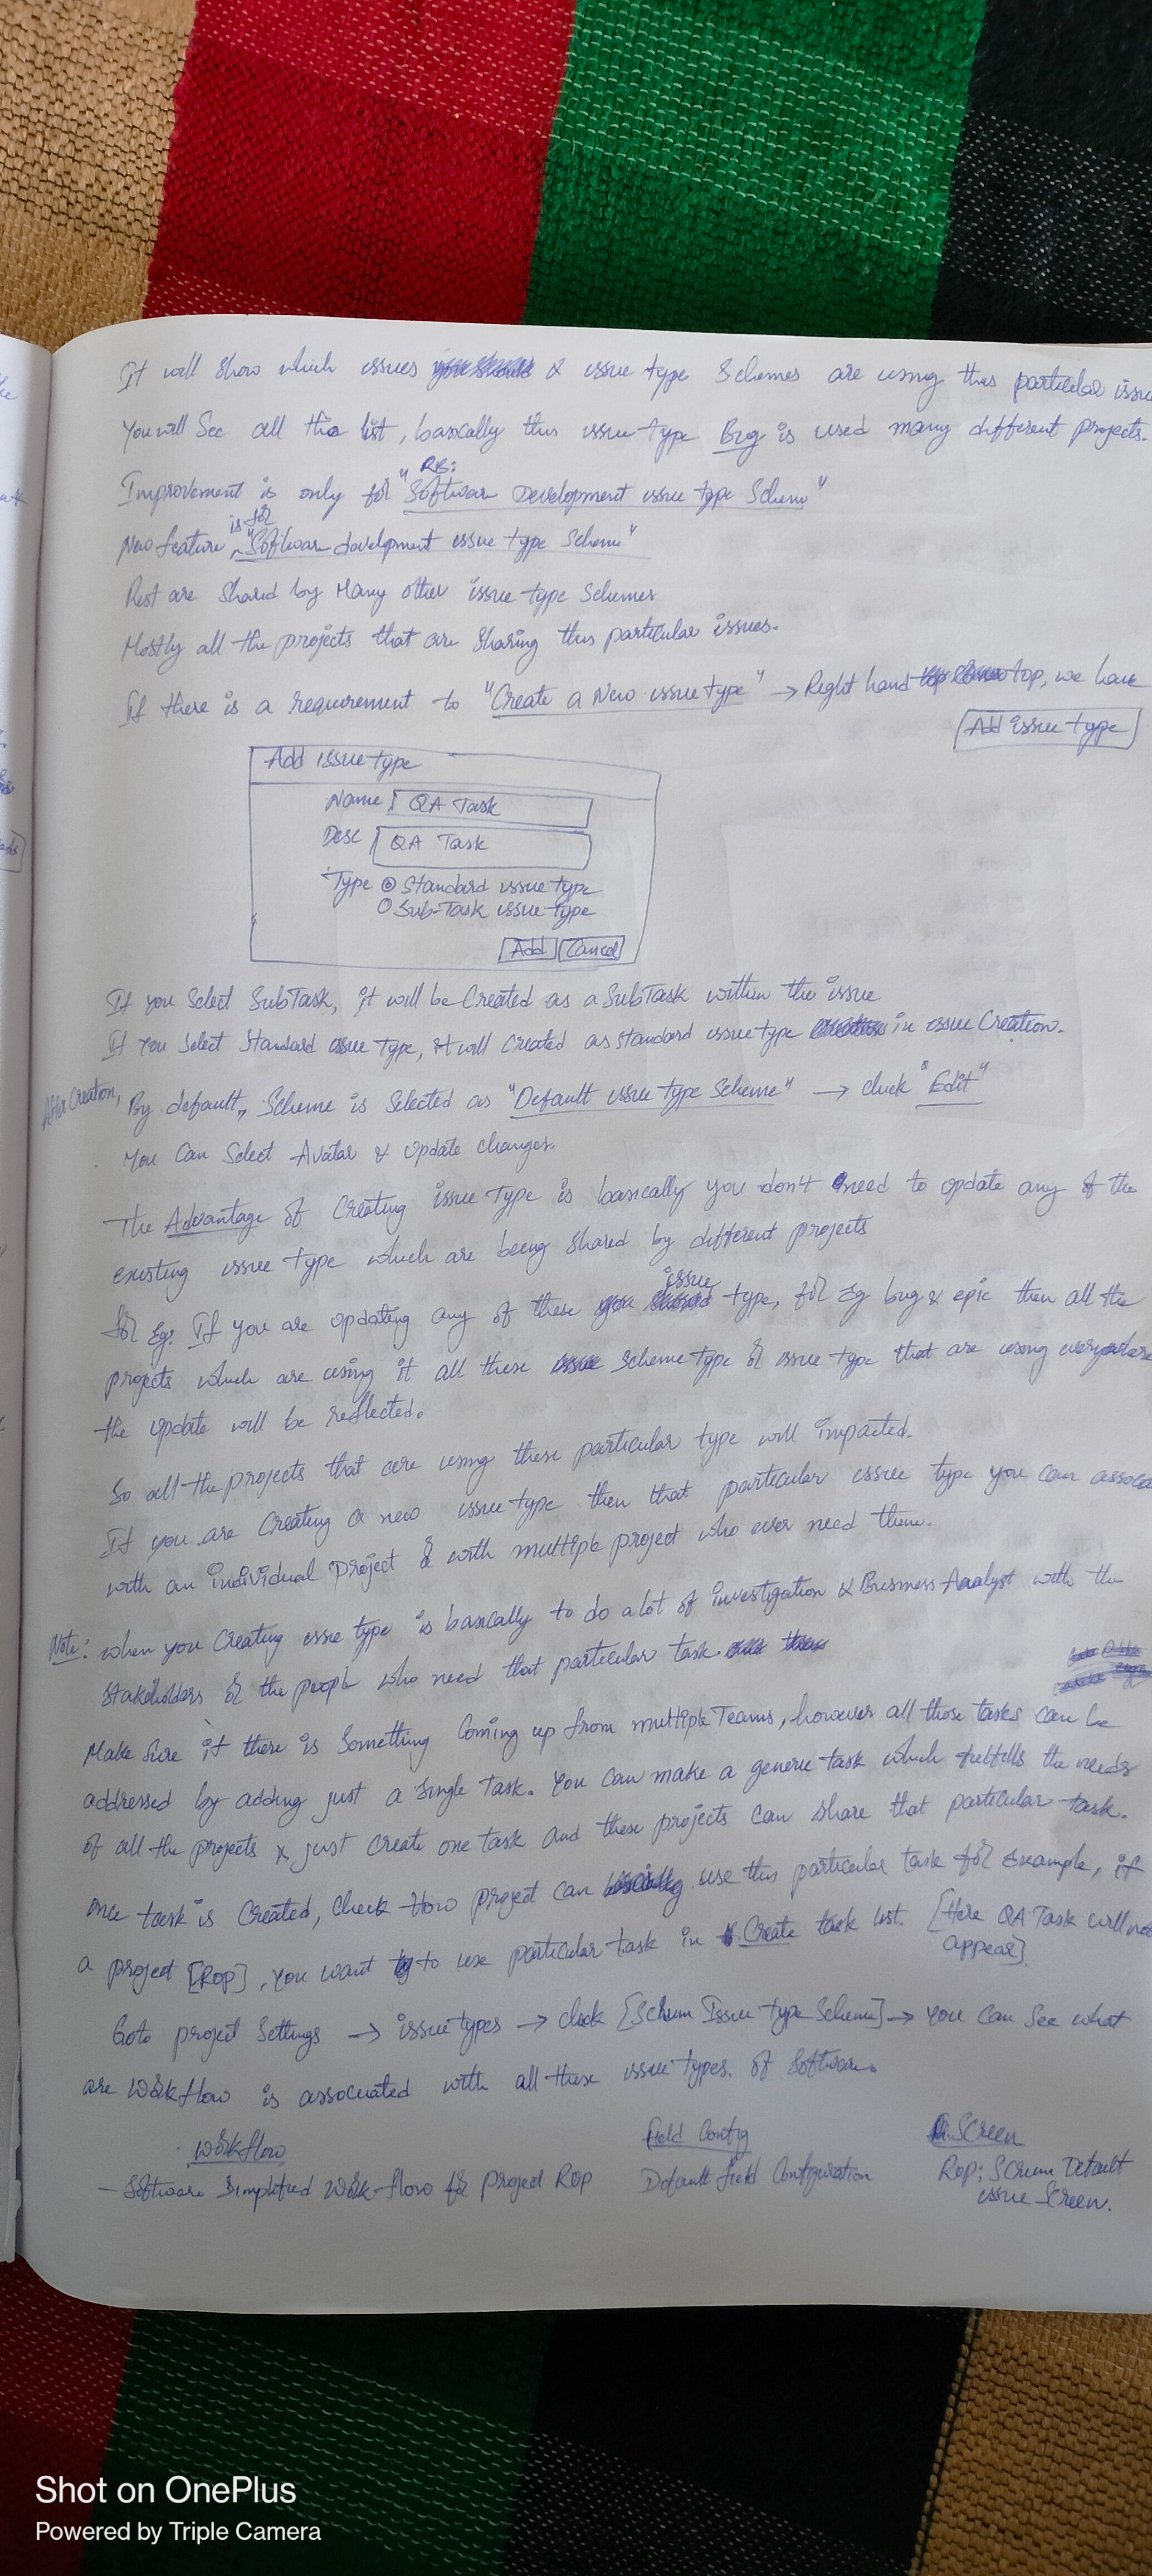 It will show which issues & issue type Schemes are using this particular issue
You will See all the list, basically this issue type Bug is used many different projects.
Improvement is only for "RB: Software Development issue type Scheme"
New feature is for "Software development issue type Scheme"
Rest are Shared by Many other issue type Schemes
Mostly all the projects that are Sharing this particular issues.
If there is a requirement to "Create a New issue type" → Right hand top, we have
Add issue type
Add issue type
Name QA Task
Desc QA Task
Type Standard issue type
Sub-Task issue type
Add Cancel
If you Select SubTask, it will be Created as a SubTask within the issue
If You Select Standard issue type, it will created as standard issue type in issue Creation.
After Creation, By default, Scheme is Selected as "Default issue type Scheme" → click "Edit"
You Can Select Avatar & update changes.
The Advantage of Creating issue type is basically you don't need to update any of the
existing issue type which are being shared by different projects
for Eg: If you are updating any of these issue type, for Eg bug & epic then all the
projects which are using it all these scheme type or issue type that are using everywhere
the update will be reflected.
So all the projects that are using these particular type will impacted.
If you are Creating a new issue type then that particular issue type you can
with an individual Project or with multiple project who ever need them.
Note: when you Creating issue type is basically to do a lot of investigation & Business Analyst with the
Stakeholders or the people who need that particular task.
Make Sure if there is Something Coming up from multiple Teams, however all those tasks can be
addressed by adding just a Single Task. You can make a generic task which fulfills the needs
of all the projects & just create one task and these projects can share that particular task.
once task is Created, check How project can use this particular task for Example, if
a project [Rop], you want to use particular task in Create task list. [Here QA Task will not
appear].
Goto project Settings → issue types → click [Scrum Issue type Scheme] → you can See what
are Workflow is associated with all these issue types. of Software.
Workflow Field Config Screen
– Software Simplified Work-flow for Project Rop Default field Configuration Rop: Scrum Default
issue Screen.
Shot on OnePlus
Powered by Triple Camera